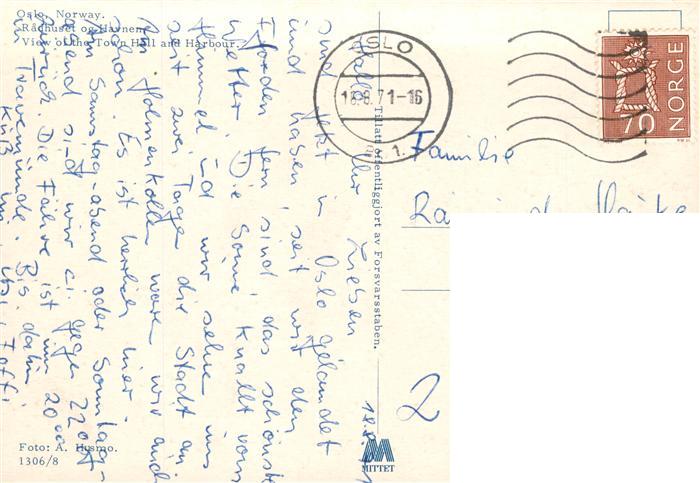 Oslo, Norway.
Rådhuset og Havnen.
View of the Town Hall and Harbour.
OSLO
18.8.71-16
1.
NORGE
70
Tillatt offentliggjort av Forsvarsstaben.
Familie
2
Hallo Ihr Lieben
sind jetzt in Oslo gelandet
und haben, seit wir den
Fjorden fern sind, das schönste
Wetter. Die Sonne knallt vom
Himmel und wir sehen uns
seit zwei Tagen die Stadt an
Am Holmenkollen waren wir auch
schon. Es ist herrlich hier.
Am Samstag-abend oder Sonntag-
abend sind wir ca gegen 22.00
zurück. Die Fähre ist um 20.00
in Travemünde. Bis dahin
Kuß
Foto: A. Husmo.
1306/8
MITTET